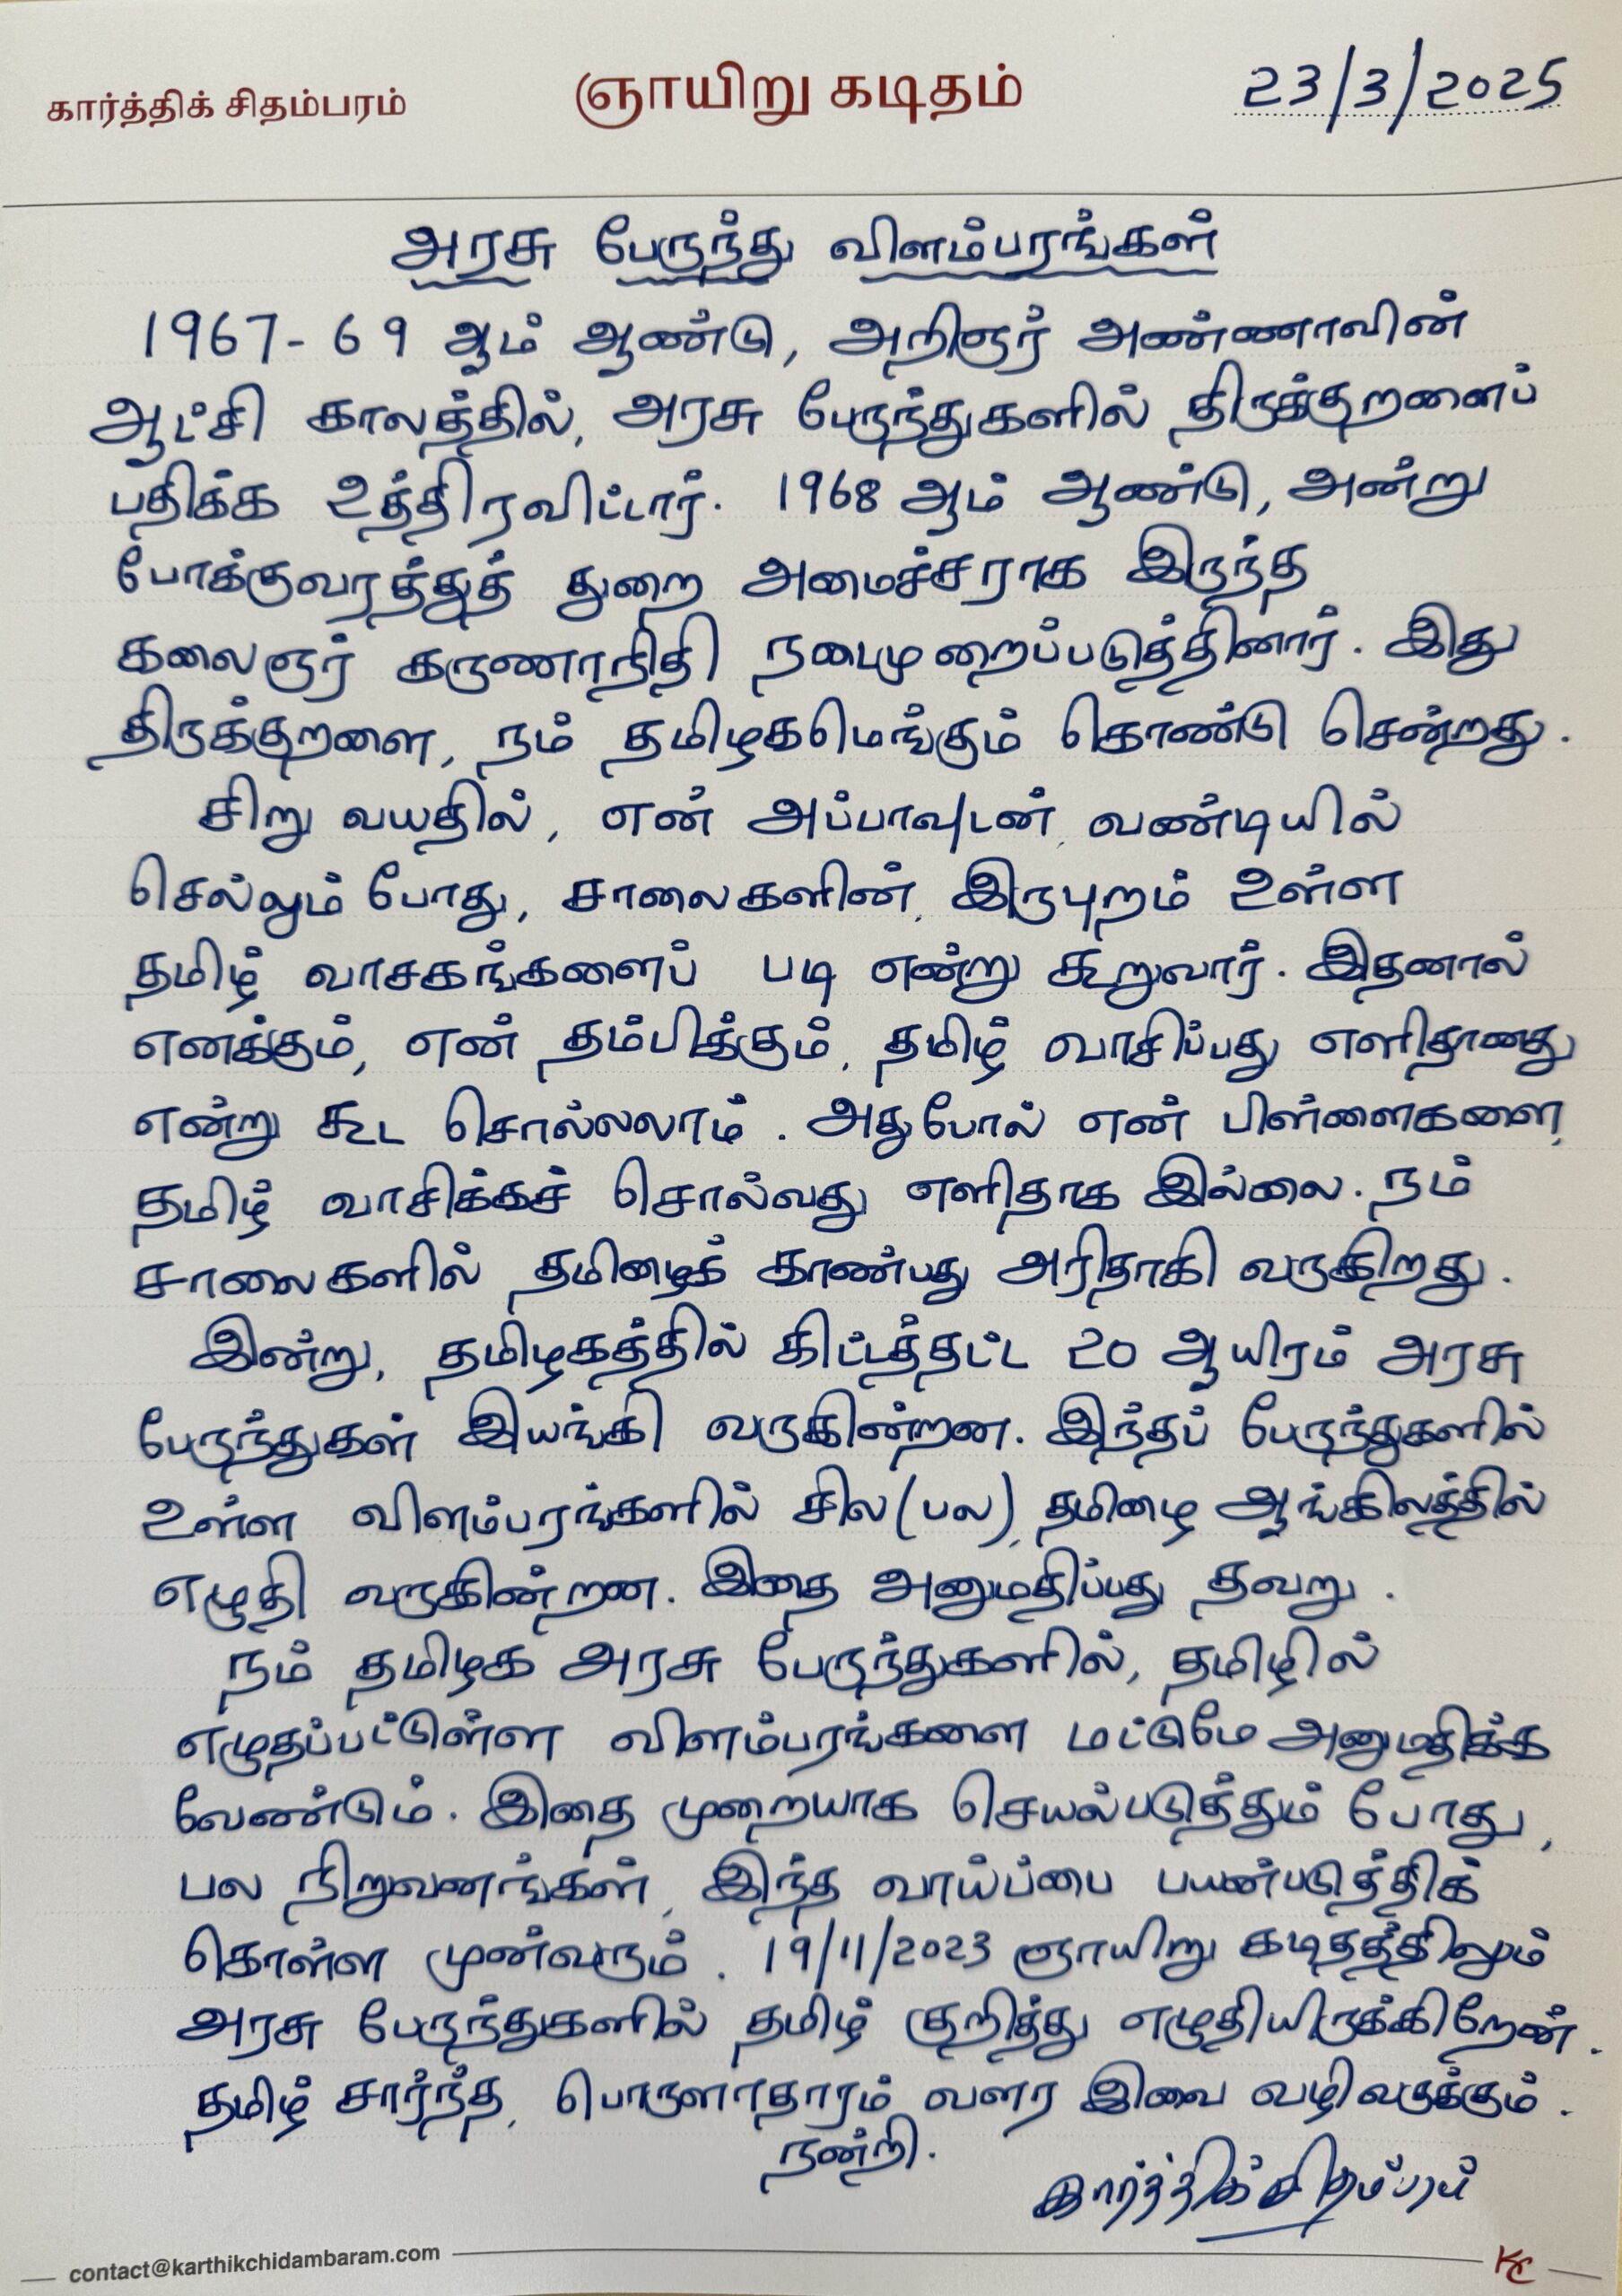 கார்த்திக் சிதம்பரம்
ஞாயிறு கடிதம்
23/3/2025
அரசு பேருந்து விளம்பரங்கள்
1967-69 ஆம் ஆண்டு, அறிஞர் அண்ணாவின்
ஆட்சி காலத்தில், அரசு பேருந்துகளில் திருக்குறளைப்
பதிக்க உத்திரவிட்டார். 1968 ஆம் ஆண்டு, அன்று
போக்குவரத்துத் துறை அமைச்சராக இருந்த
கலைஞர் கருணாநிதி நடைமுறைப்படுத்தினார். இது
திருக்குறளை, நம் தமிழகமெங்கும் கொண்டு சென்றது.
சிறு வயதில், என் அப்பாவுடன், வண்டியில்
செல்லும் போது, சாலைகளின், இருபுறம் உள்ள
தமிழ் வாசகங்களைப் படி என்று கூறுவார். இதனால்
எனக்கும், என் தம்பிக்கும், தமிழ் வாசிப்பது எளிதானது
என்று கூட சொல்லலாம். அதுபோல் என் பிள்ளைகளை,
தமிழ் வாசிக்கச் சொல்வது எளிதாக இல்லை. நம்
சாலைகளில் தமிழைக் காண்பது அரிதாகி வருகிறது.
இன்று, தமிழகத்தில் கிட்டத்தட்ட 20 ஆயிரம் அரசு
பேருந்துகள் இயங்கி வருகின்றன. இந்தப் பேருந்துகளில்
உள்ள விளம்பரங்களில் சில (பல), தமிழை ஆங்கிலத்தில்
எழுதி வருகின்றன. இதை அனுமதிப்பது தவறு.
நம் தமிழக அரசு பேருந்துகளில், தமிழில்
எழுதப்பட்டுள்ள விளம்பரங்களை மட்டுமே அனுமதிக்க
வேண்டும். இதை முறையாக செயல்படுத்தும் போது,
பல நிறுவனங்கள், இந்த வாய்ப்பை பயன்படுத்திக்
கொள்ள முன்வரும். 19/11/2023 ஞாயிறு கடிதத்திலும்
அரசு பேருந்துகளில் தமிழ் குறித்து எழுதியிருக்கிறேன்.
தமிழ் சார்ந்த, பொருளாதாரம் வளர இவை வழிவகுக்கும்.
நன்றி.
கார்த்திக் சிதம்பரம்
contact@karthikchidambaram.com
KC